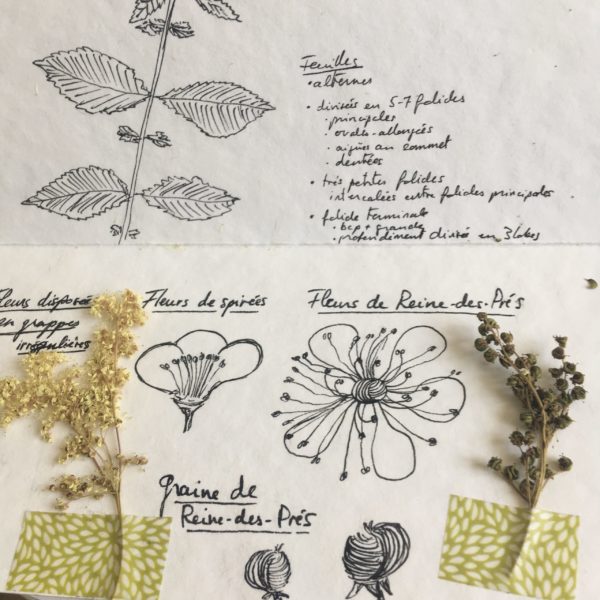 Feuilles
• alternes
• divisées en 5-7 folioles
• principales
• ovales-allongées
• aigües au sommet
• dentées
• très petites folioles
intercalées entre folioles principales
• foliole terminale
• bcp + grande
• profondément divisé en 3 lobes
Fleurs disposées
en grappes
irrégulières
Fleurs de spirées
Fleurs de Reine-des-Prés
graine de
Reine-des-Prés